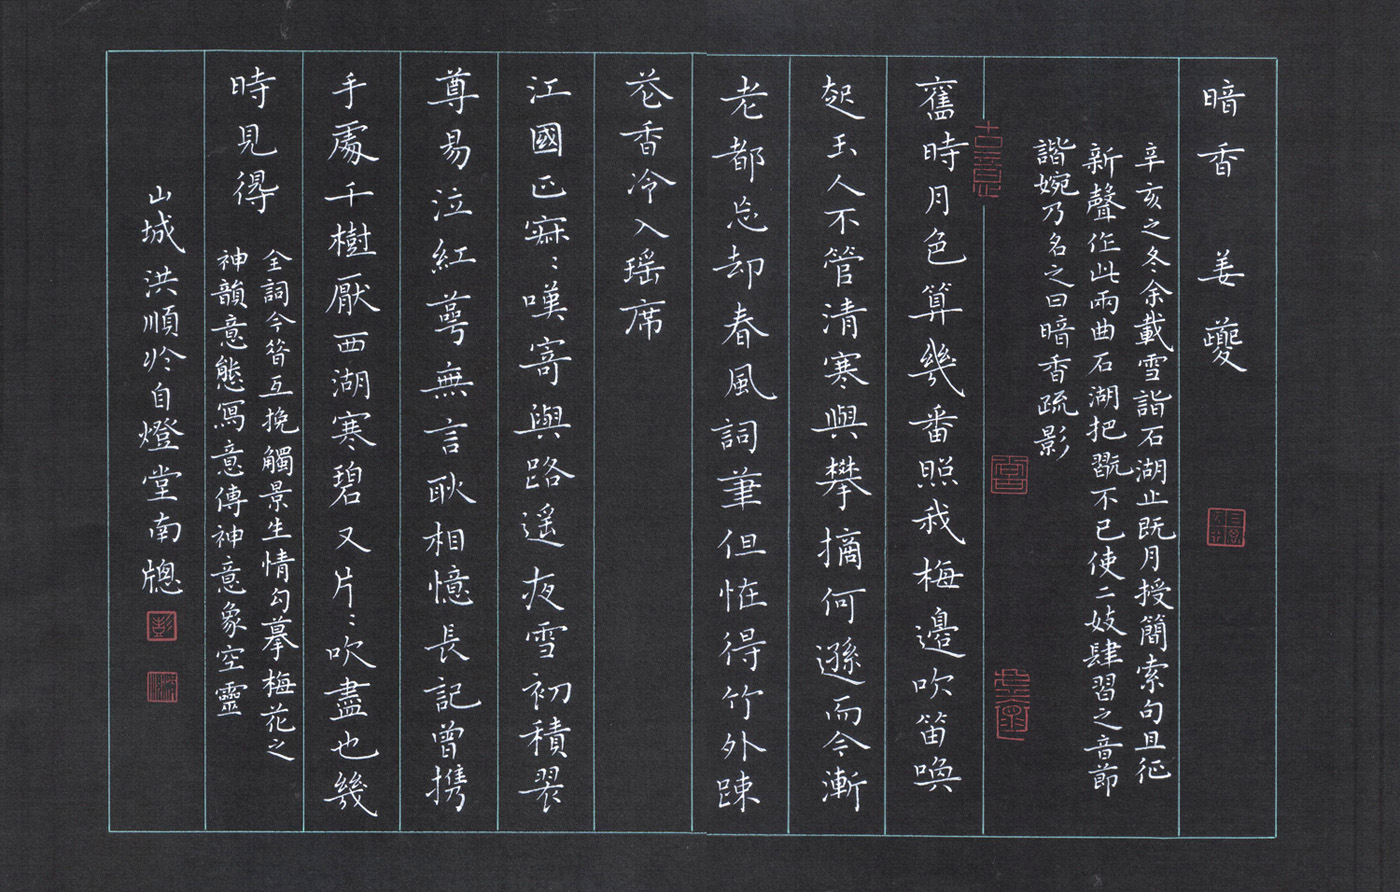 暗香　姜夔
辛亥之冬余載雪詣石湖止既月授簡索句且征
新聲作此兩曲石湖把翫不已使二妓肄習之音節
諧婉乃名之曰暗香疏影
舊時月色算幾番照我梅邊吹笛喚
起玉人不管清寒與攀摘何遜而今漸
老都忘却春風詞筆但恠得竹外踈
花香冷入瑶席
江國正寂〻嘆寄與路遥夜雪初積翠
尊易泣紅萼無言耿相憶長記曾携
手處千樹厭西湖寒碧又片〻吹盡也幾
時見得
全詞今昔互挽觸景生情勾摹梅花之
神韻意態寫意傳神意象空靈
山城洪順 自燈堂南牕